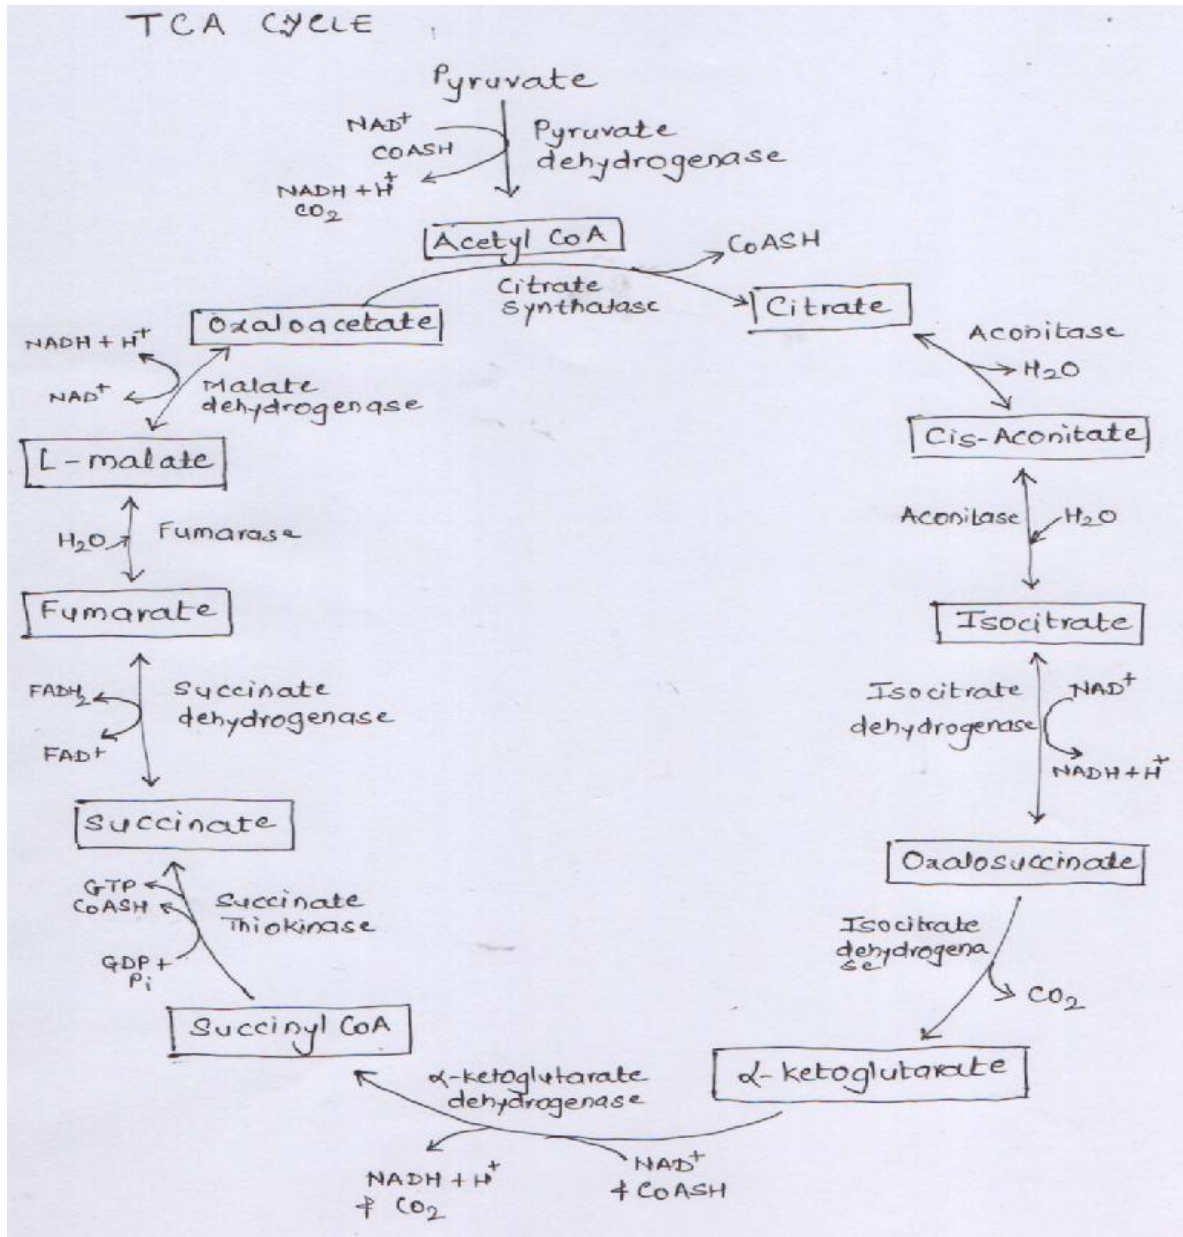 TCA CYCLE
Pyruvate
NAD+
COASH
NADH + H+
CO2
Pyruvate
dehydrogenase
Acetyl CoA
COASH
Citrate
Synthatase
Oxaloacetate
Citrate
Aconitase
H2O
Cis-Aconitate
Aconitase
H2O
Isocitrate
Isocitrate
dehydrogenase
NAD+
NADH + H+
Oxalosuccinate
Isocitrate
dehydrogena
se
CO2
α-ketoglutarate
α-ketoglutarate
dehydrogenase
NAD+
& COASH
NADH + H+
& CO2
Succinyl CoA
Succinate
Thiokinase
GTP
COASH
GDP +
Pi
Succinate
Succinate
dehydrogenase
FADH2
FAD+
Fumarate
Fumarase
H2O
L-malate
Malate
dehydrogenase
NADH + H+
NAD+